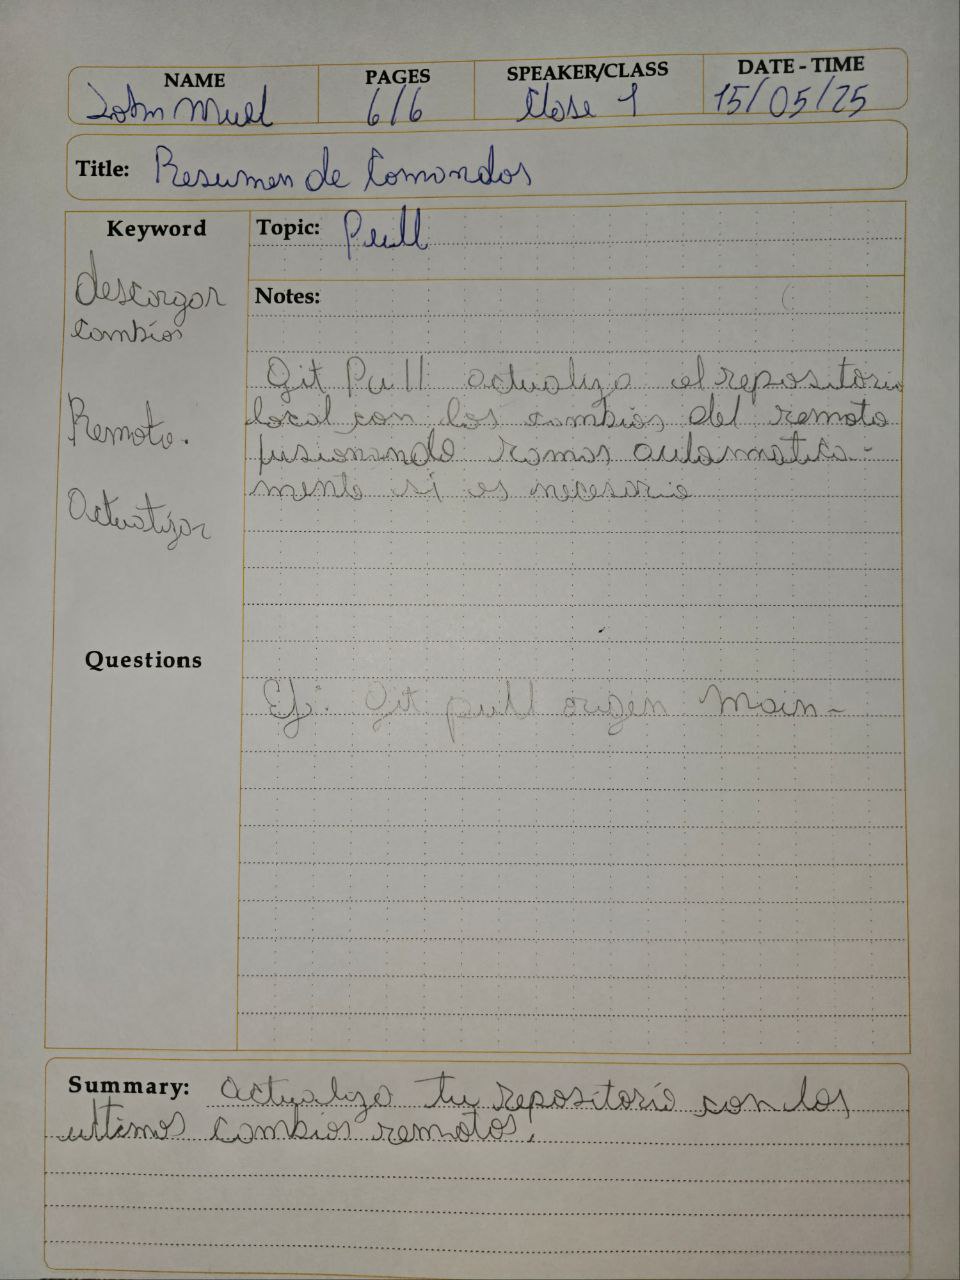 NAME
PAGES
SPEAKER/CLASS
DATE - TIME
John
6/6
Clase 1
15/05/25
Title: Resumen de Comandos
Keyword
Topic: Pull
descargar
cambios
Remoto.
Actualizar
Notes:
Git Pull actualiza el repositorio
local con los cambios del remoto
fusionando ramas automatica-
mente si es necesario
Questions
Ej: Git pull origen main-
Summary: actualiza tu repositorio con los
ultimos cambios remotos.